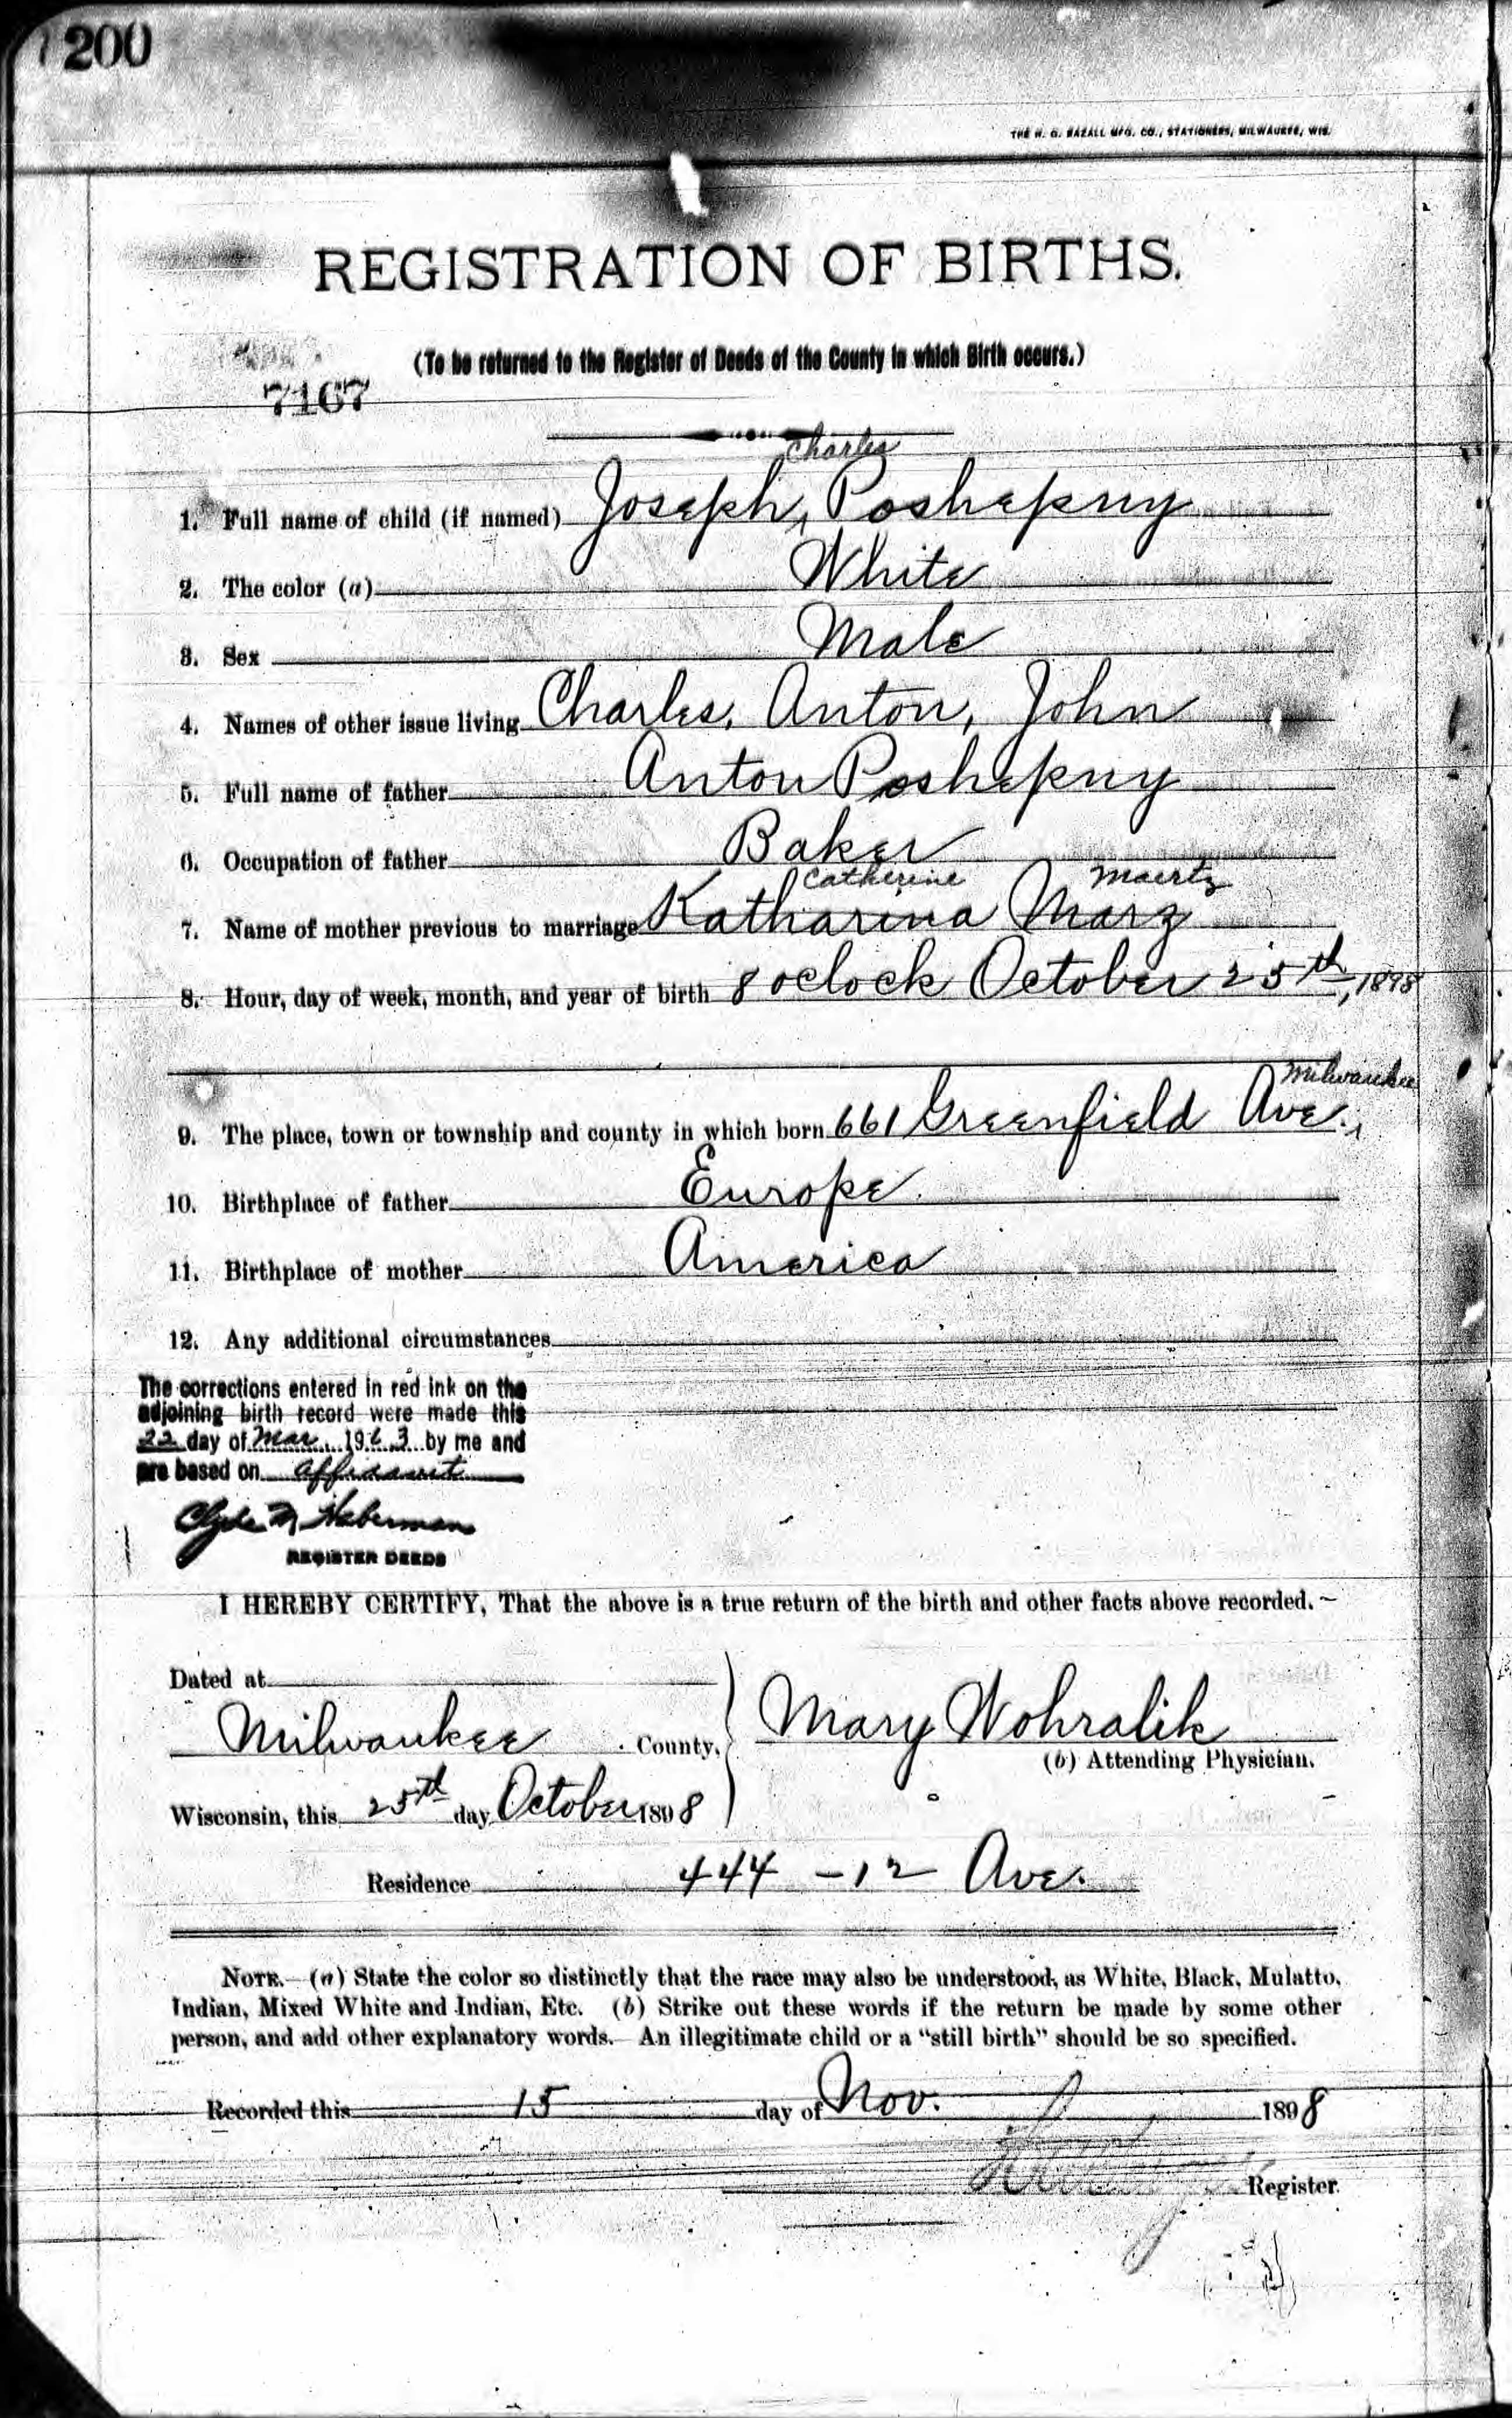 200
THE H. G. RAZALL MFG. CO., STATIONERS, MILWAUKEE, WIS.
REGISTRATION OF BIRTHS.
(To be returned to the Register of Deeds of the County in which Birth occurs.)
7167
Charles
1. Full name of child (if named) Joseph, Poshepny
2. The color (a) White
3. Sex Male
4. Names of other issue living Charles, Anton, John
5. Full name of father Anton Poshepny
6. Occupation of father Baker
Catherine Maertz
7. Name of mother previous to marriage Katharina Marz
8. Hour, day of week, month, and year of birth 8 oclock October 25th, 1898
Milwaukee
9. The place, town or township and county in which born 661 Greenfield Ave.,
10. Birthplace of father Europe
11. Birthplace of mother America
12. Any additional circumstances
The corrections entered in red ink on the
adjoining birth record were made this
22 day of Mar 1963 by me and
are based on affidavit
Clyde M Haberman
REGISTER DEEDS
I HEREBY CERTIFY, That the above is a true return of the birth and other facts above recorded.
Dated at
Milwaukee County,
Mary Wohralik
(b) Attending Physician.
Wisconsin, this 25th day October 1898
Residence 444 - 12 Ave.
NOTE.—(a) State the color so distinctly that the race may also be understood, as White, Black, Mulatto,
Indian, Mixed White and Indian, Etc. (b) Strike out these words if the return be made by some other
person, and add other explanatory words. An illegitimate child or a "still birth" should be so specified.
Recorded this 15 day of Nov. 1898
Register.